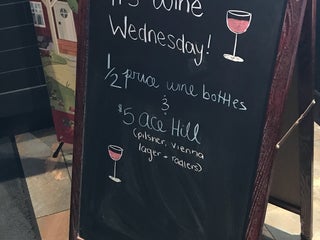 It's Wine
Wednesday!
1/2 price wine bottles
&
$5 ace Hill
(pilsner, vienna
lager + radlers)